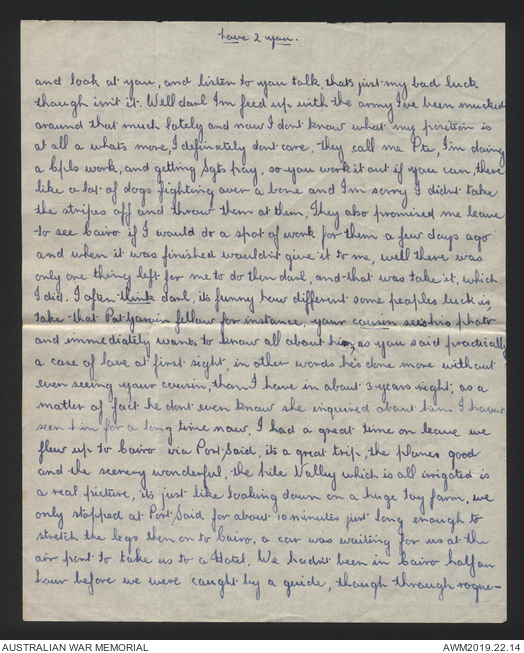 Love 2 you.
and look at you, and listen to you talk, thats just my bad luck
though isnt it. Well darl Im feed up with the army I've been mucked
around that much lately and now I dont know what my position is
at all a whats more, I definately dont care, they call me Pte, I'm doing
a Cpls work, and getting Sgts pay, so you work it out if you can, there
like a lot of dogs fighting over a bone and I'm sorry I didnt take
the stripes off and throw them at them, They also promised me leave
to see Cairo if I would do a spot of work for them a few days ago
and when it was finished wouldnt give it to me, well there was
only one thing left for me to do then darl, and that was take it, which
I did. I often think darl, its funny how different some peoples luck is,
take that Pat fellow for instance, your cousin sees his photo
and immediately wants to know all about him, as you said practically
a case of love at first sight, in other words he's done more without
even seeing your cousin, than I have in about 3 years right, as a
matter of fact he dont even know she inquired about him I havent
seen him for a long time now, I had a great time on leave we
flew up to Cairo via Port Said, its a great trip, the planes good
and the scenery wonderful, the Nile Valley which is all irrigated is
a real picture, its just like looking down on a huge toy farm, we
only stopped at Port Said for about 10 minutes just long enough to
stretch the legs then on to Cairo, a car was waiting for us at the
air port to take us to a Hotel. We hadnt been in Cairo half an
hour before we were caught by a guide, though through rogue-
AUSTRALIAN WAR MEMORIAL
AWM2019.22.14